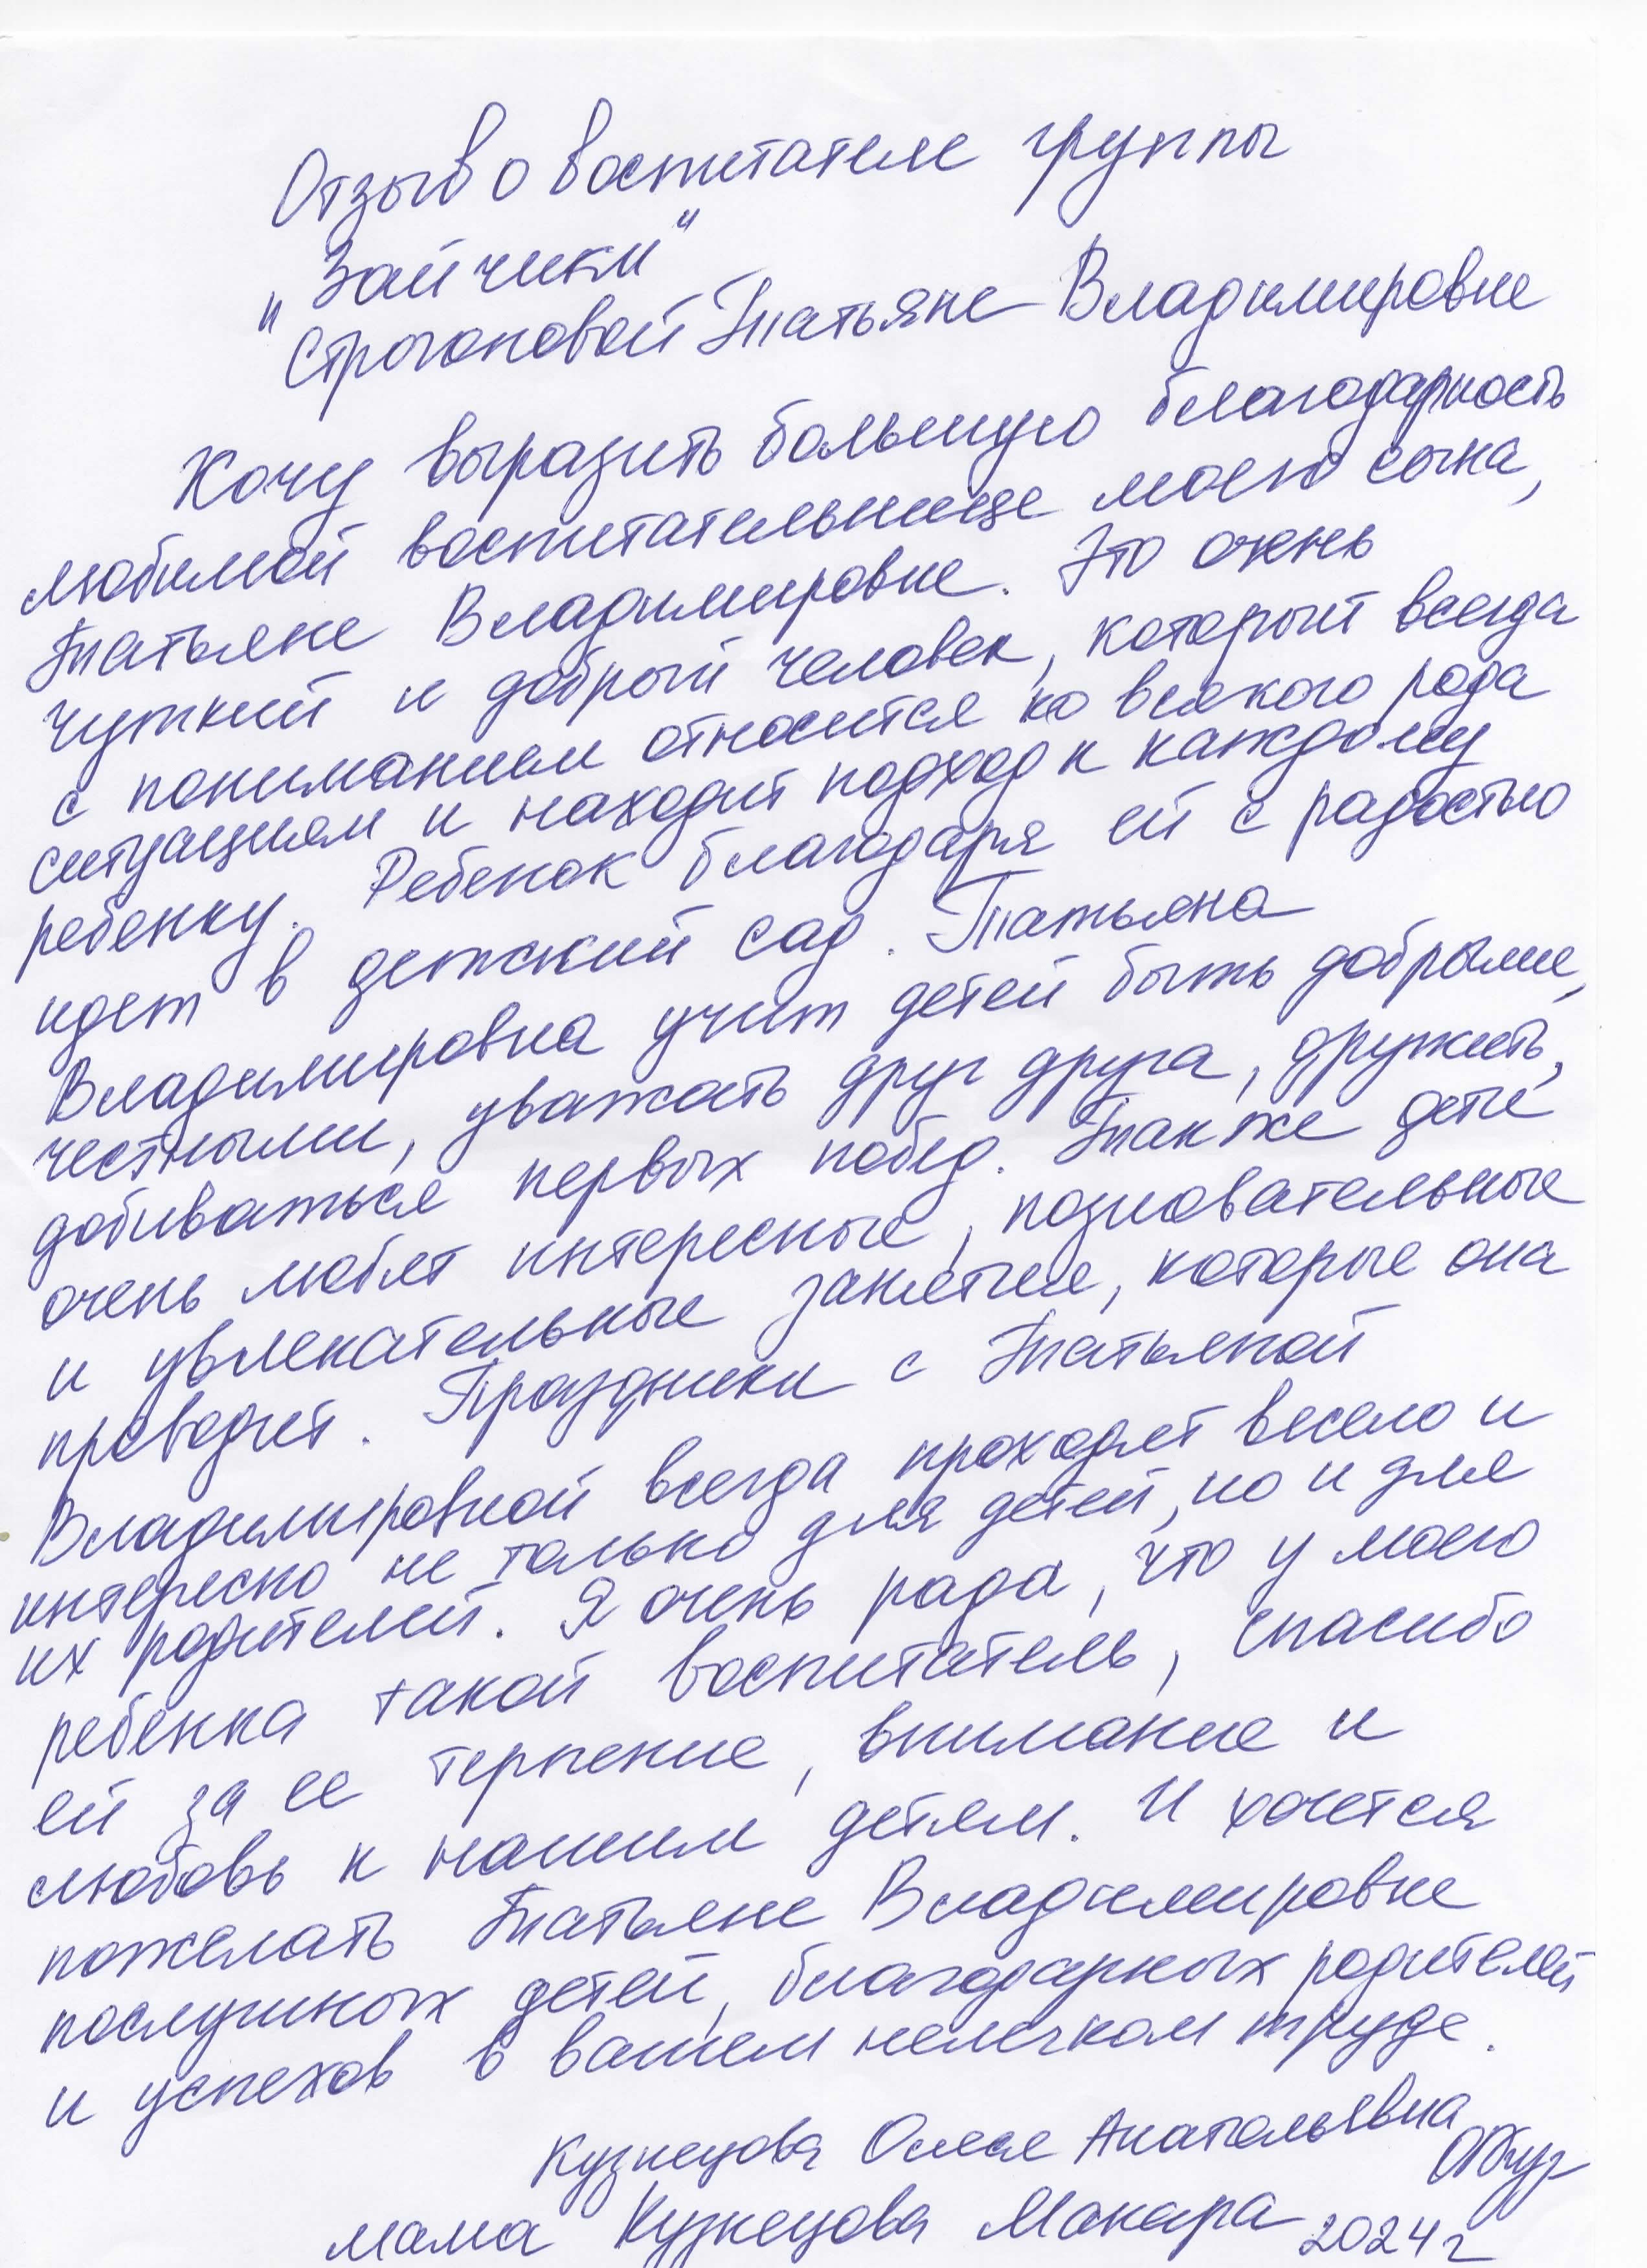 Отзыв о воспитателе группы
"Зайчики"
Строгоновой Татьяне Владимировне
Хочу выразить большую благодарность
любимой воспитательнице моего сына,
Татьяне Владимировне. Это очень
чуткий и добрый человек, который всегда
с пониманием относится ко всякого рода
ситуациям и находит подход к каждому
ребенку. Ребенок благодаря ей с радостью
идет в детский сад. Татьяна
Владимировна учит детей быть добрыми,
честными, уважать друг друга, дружить,
добиваться первых побед. Также дети
очень любят интересные, познавательные
и увлекательные занятия, которые она
проводит. Праздники с Татьяной
Владимировной всегда проходят весело и
интересно не только для детей, но и для
их родителей. Я очень рада, что у моего
ребенка такой воспитатель, спасибо
ей за ее терпение, внимание и
любовь к нашим детям. И хочется
пожелать Татьяне Владимировне
послушных детей, благодарных родителей
и успехов в вашем нелегком труде.
Кузнецова Олеся Анатольевна
мама Кузнецова Макара 2024 г